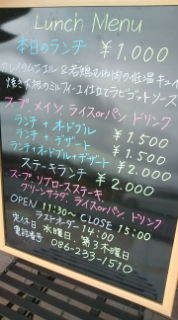 Lunch Menu
本日のランチ ¥1,000
若鶏むね肉の低温
焼き ミルフィーユ仕立てラビゴットソース
スープ、メイン、ライスorパン、ドリンク
ランチ+オードブル ¥1.500
ランチ+デザート ¥1.500
ランチ+オードブル+デザート ¥2.000
ステーキランチ ¥2.000
スープ、リブロースステーキ、
グリーンサラダ、ライスorパン、ドリンク
OPEN 11:30~ CLOSE 15:00
ラストオーダー 14:00
定休日 水曜日、第3木曜日
電話番号 086-233-1510